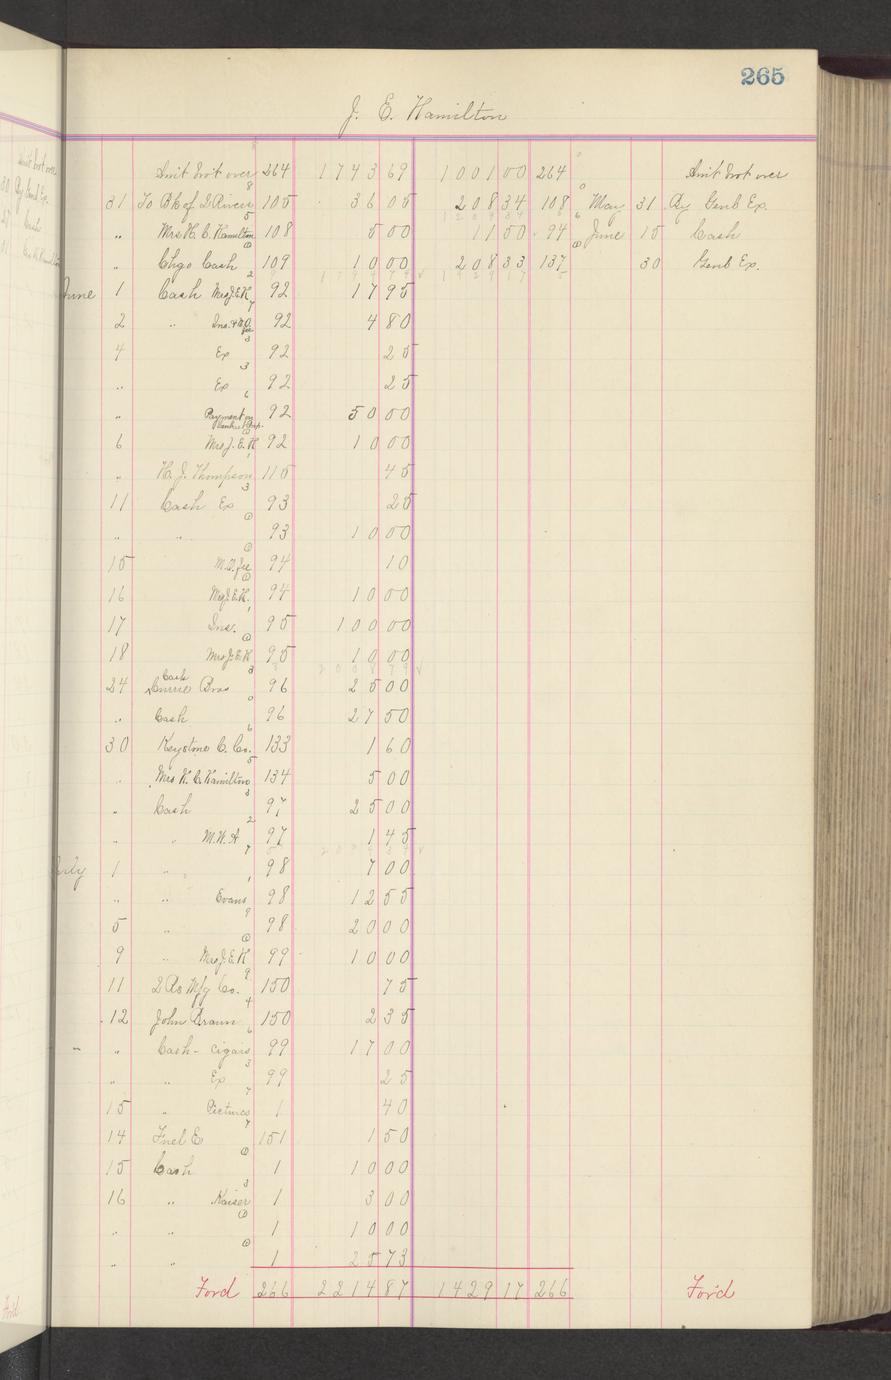 265
J. E. Hamilton
Am't bro't over 264 1743 69 1001 00 264 Am't bro't over
31 To Bk of 2 Rivers 105 36 05 208 34 108 May 31 By Genl Ex.
" Mrs H. C. Hamilton 108 5 00 11 50 94 June 15 Cash
" Chgo Cash 109 10 00 208 33 137 30 Genl Ex.
June 1 Cash Mrs J.E.H. 92 17 95
2 " Ins. & M.O. fee 92 4 80
4 Ex 92 25
" Ex 92 25
" Payment on 92 50 00
6 Mrs J.E.H 92 10 00
" H. J. Thompson 115 45
11 Cash Ex 93 25
" " 93 10 00
15 M.O. fee 94 10
16 Mrs J.E.H. 94 10 00
17 Ins. 95 100 00
18 Mrs J.E.H 95 10 00
24 Cash Currie Bros 96 25 00
" Cash 96 27 50
30 Keystone C. Co. 133 1 60
" Mrs. H. C. Hamilton 134 5 00
" Cash 97 25 00
" " M.W.A 97 1 45
July 1 " 98 7 00
" " Evans 98 12 55
5 " 98 20 00
9 " Mrs J.E.H 99 10 00
11 2 Rs Mfg Co. 150 75
12 John Braun 150 2 35
" Cash - cigars 99 17 00
" " Ex 99 25
15 " Pictures 1 40
14 Fuel E 151 1 50
15 Cash 1 10 00
16 " Kaiser 1 3 00
" " 1 10 00
" " 1 25 73
Ford 266 2214 87 1429 17 266 For'd